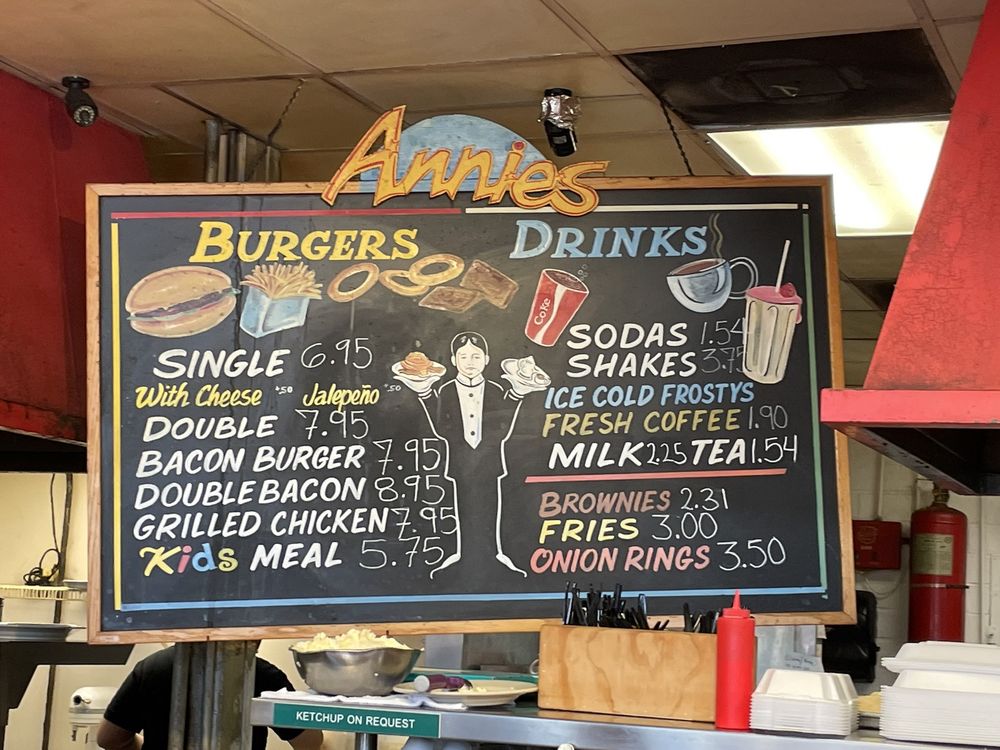 Annies
BURGERS
SINGLE 6.95
With Cheese +.50 Jalapeño +.50
DOUBLE 7.95
BACON BURGER 7.95
DOUBLE BACON 8.95
GRILLED CHICKEN 7.95
Kids MEAL 5.75
DRINKS
Coke
SODAS 1.54
SHAKES 3.75
ICE COLD FROSTYS
FRESH COFFEE 1.90
MILK 2.25 TEA 1.54
BROWNIES 2.31
FRIES 3.00
ONION RINGS 3.50
KETCHUP ON REQUEST